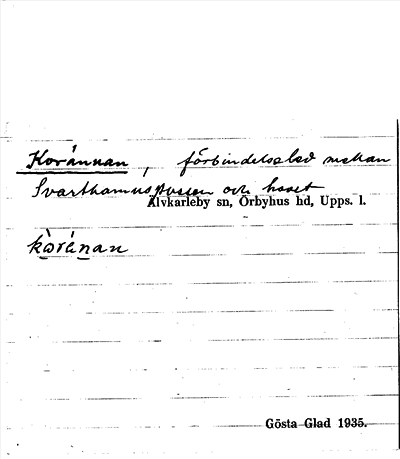 Korännan, förbindelseled mellan
Svarthamnspussen och havet
Älvkarleby sn, Örbyhus hd, Upps. l.
kòránan
Gösta Glad 1935.